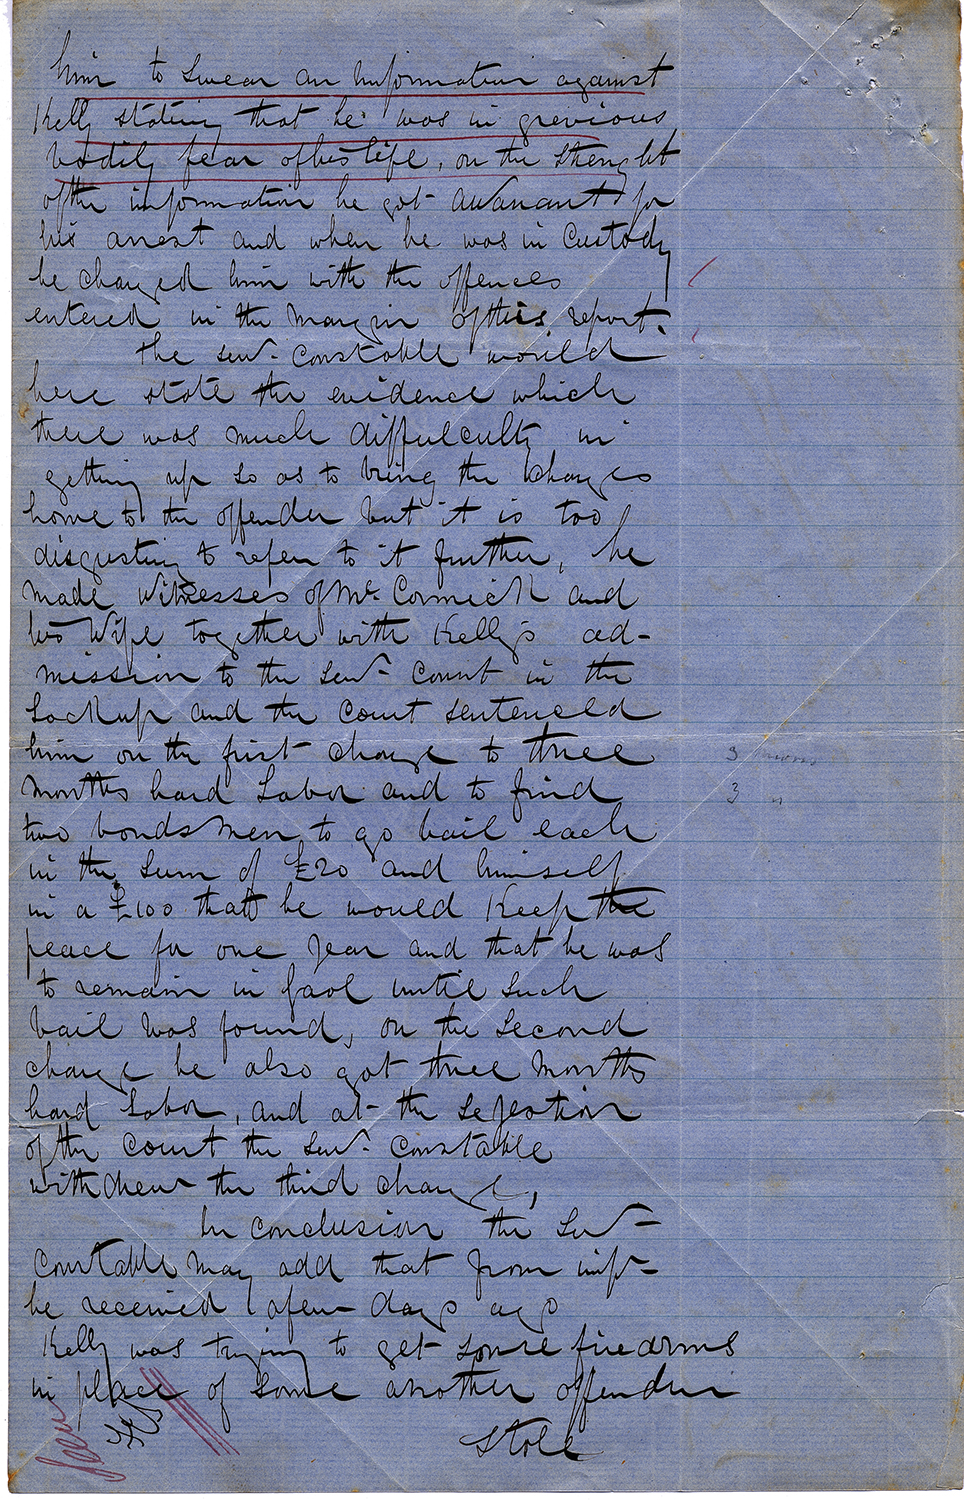 him to Swear an Information against
Kelly stating that he was in grevious
bodily fear of his life, on the strenght
of the information he got a Warrant for
his arrest and when he was in Custody
he charged him with the offences
entered in the Margin of this report.
The Senr. Constable would
here state the evidence which
there was much diffulculty in
getting up so as to bring the charges
home to the offender but it is too
disgusting to refer to it further, he
made Witnesses of Mc. Cormick and
his Wife together with Kelly's ad-
mission to the Senr. Const in the
Lockup and the Court sentenced
him on the first charge to three
Months hard Labor and to find
two bondsmen to go bail each
in the Sum of £20 and himself
in a £100 that he would Keep the
peace for one Year and that he was
to remain in Gaol until such
bail was found, on the second
charge he also got three Months
hard Labor, and at the
of the Court the Senr. Constable
withdrew the third charge,
In conclusion the Senr
Constable May add that from infr
he received a few days ago
Kelly was trying to get some firearms
in place of some another offender
Stole
3 mons
3 "
seen